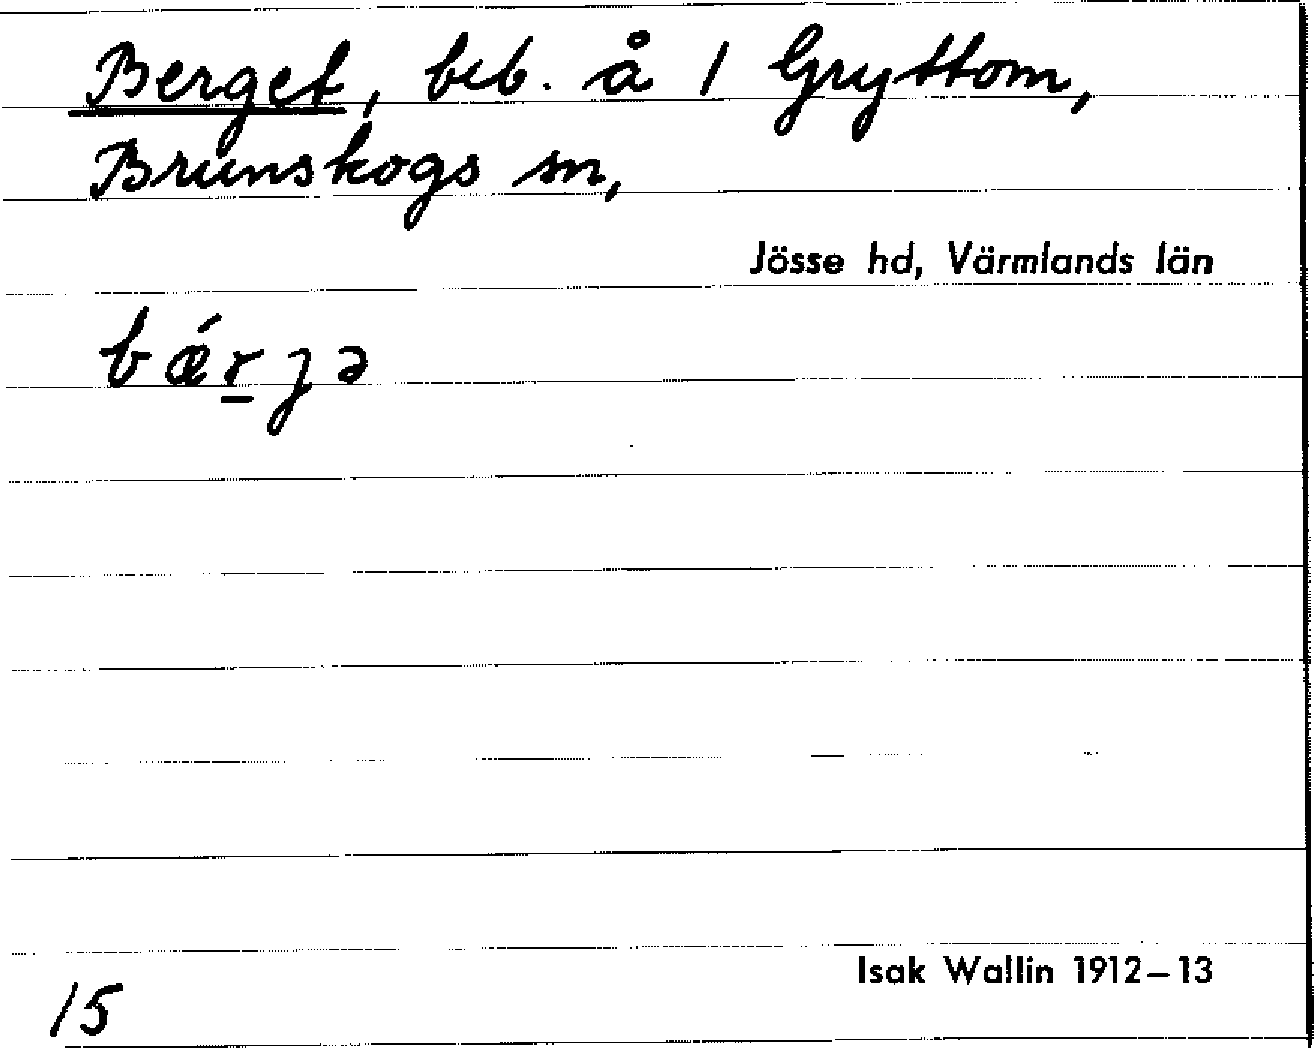 Berget, beb. å 1 Gryttom,
Brunskogs sn,
Jösse hd, Värmlands län
bǽr̲jə
Isak Wallin 1912–13
15